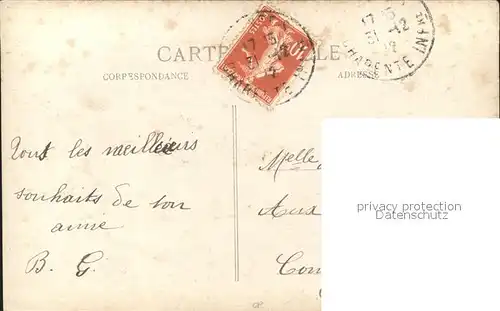 CARTE POSTALE
CORRESPONDANCE
ADRESSE
17 15
31 -12
12
CHARENTE INFRE
Tout les meilleurs
souhaits de ton
amie
B. G.
Melle
Aux
Con
privacy protection
Datenschutz